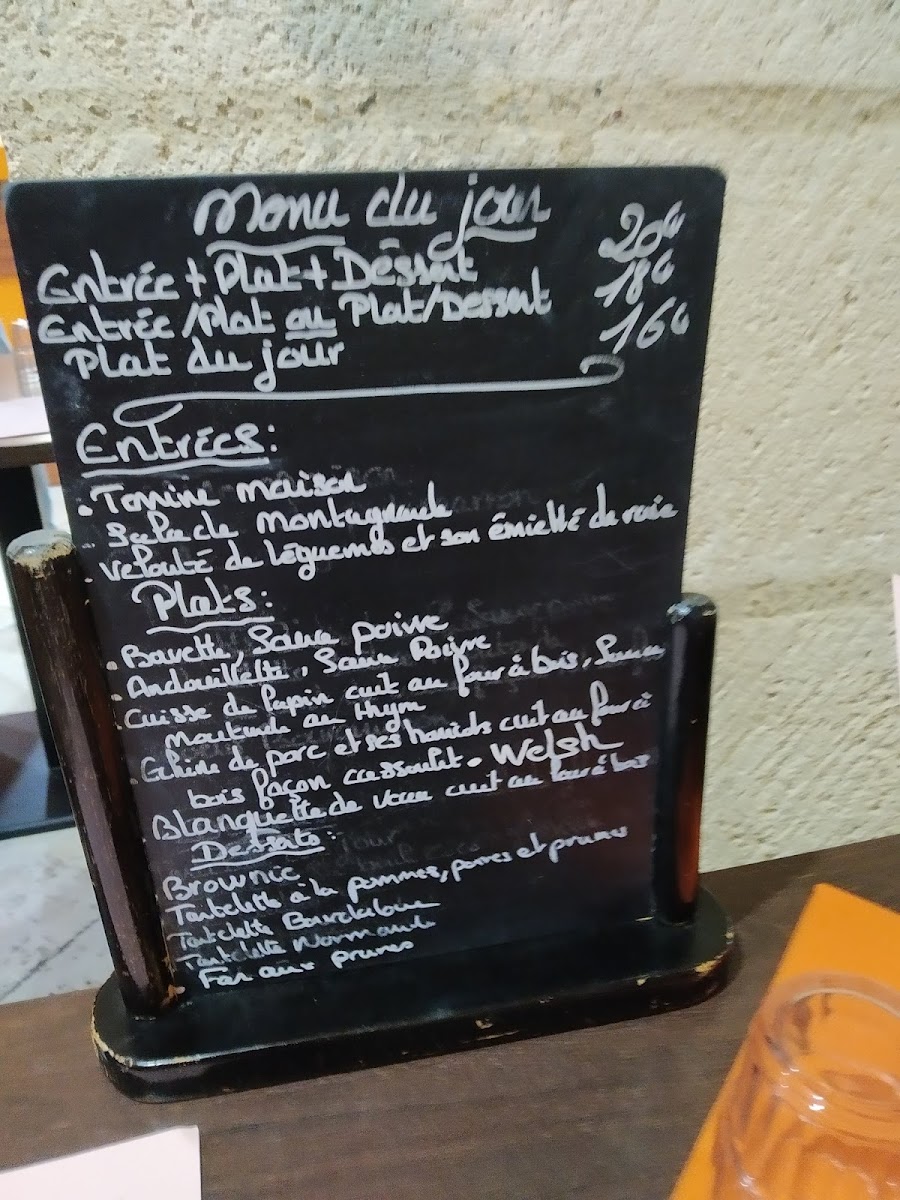 Menu du jour
Entrée + Plat + Dessert 20€
Entrée/Plat ou Plat/Dessert 18€
Plat du jour 16€
Entrées:
. Terrine maison
. Salade montagnarde
. Velouté de légumes et son émietté de raie
Plats:
. Bavette, Sauce poivre
. Andouillette, Sauce Poivre
. Cuisse de lapin cuit au four à bois, Sauce
moutarde au thym
. Echine de porc et ses haricots cuit au four à
bois façon cassoulet. Welsh
Blanquette de veau cuit au four à bois
Desserts:
Brownie
Tartelette à la pommes, poires et prunes
Tartelette Bourdaloue
Tartelette Normande
. Far aux prunes